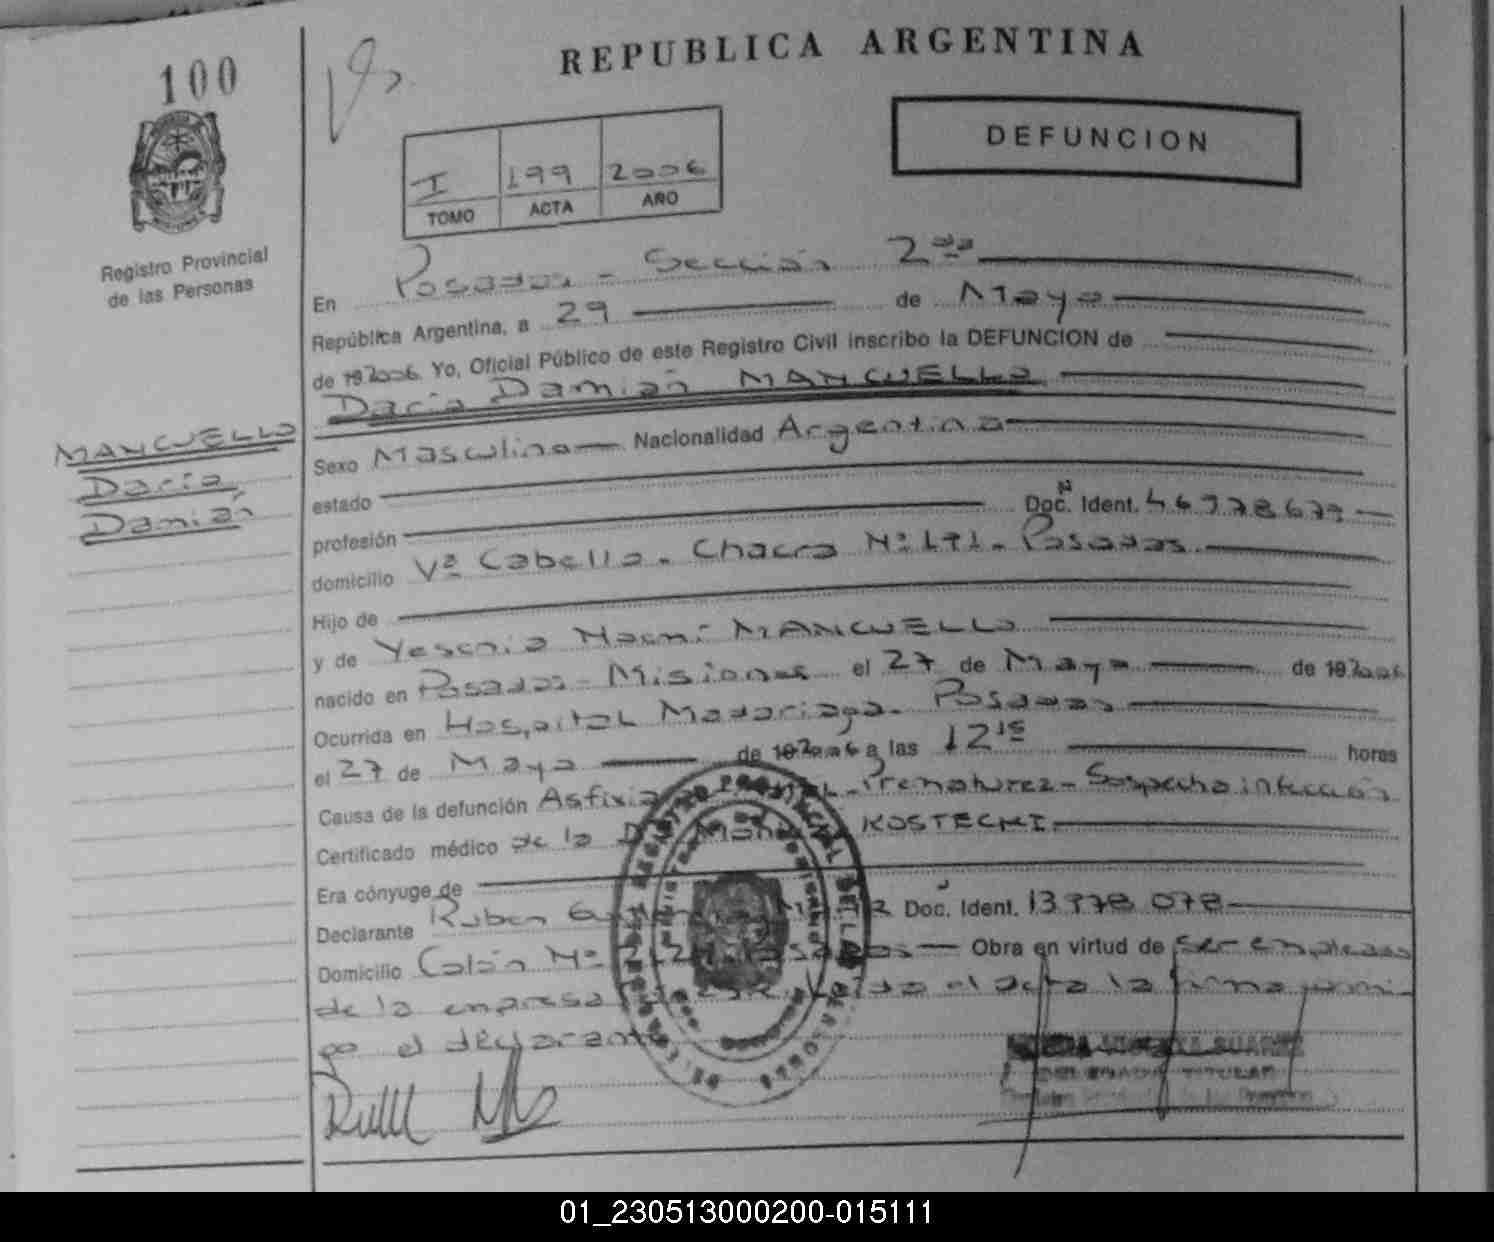 100
REPUBLICA ARGENTINA
DEFUNCION
I 199 2006
TOMO ACTA AÑO
Registro Provincial
de las Personas
En Posadas - Sección 2da
República Argentina, a 29 de Mayo
de 192006 Yo, Oficial Público de este Registro Civil inscribo la DEFUNCION de
Dario Damian MANCUELLO
MANCUELLO
Dario
Damián
Sexo Masculino Nacionalidad Argentina
estado
profesión Doc. Ident.
domicilio Vª Cabello - Chacra Nº 191 - Posadas
Hijo de
y de Yesenia Noemí MANCUELLO
nacido en Posadas - Misiones el 27 de Mayo de 192006
Ocurrida en Hospital Madariaga - Posadas
el 27 de Mayo de 192006 a las 12 15 horas
Causa de la defunción Asfixia - Prematurez - Sospecha infección
Certificado médico de la KOSTECKI
Era cónyuge de
Declarante Ruben Doc. Ident. 13 978 078
Domicilio Colón Nº Obra en virtud de ser empleado
de la empresa Leída el acta la firma conmi-
go el declarante
SUAREZ
DELEGADA TITULAR
01_230513000200-015111